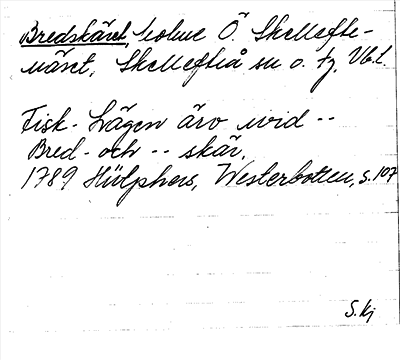 Bredskäret, holme Ö. Skellefte-
näset, Skellefteå sn o. tg. Vb. l.
Fisk-Lägen äro wid --
Bred- och -- skär,
1789 Hülphers, Westerbotten, s. 107
S. kj